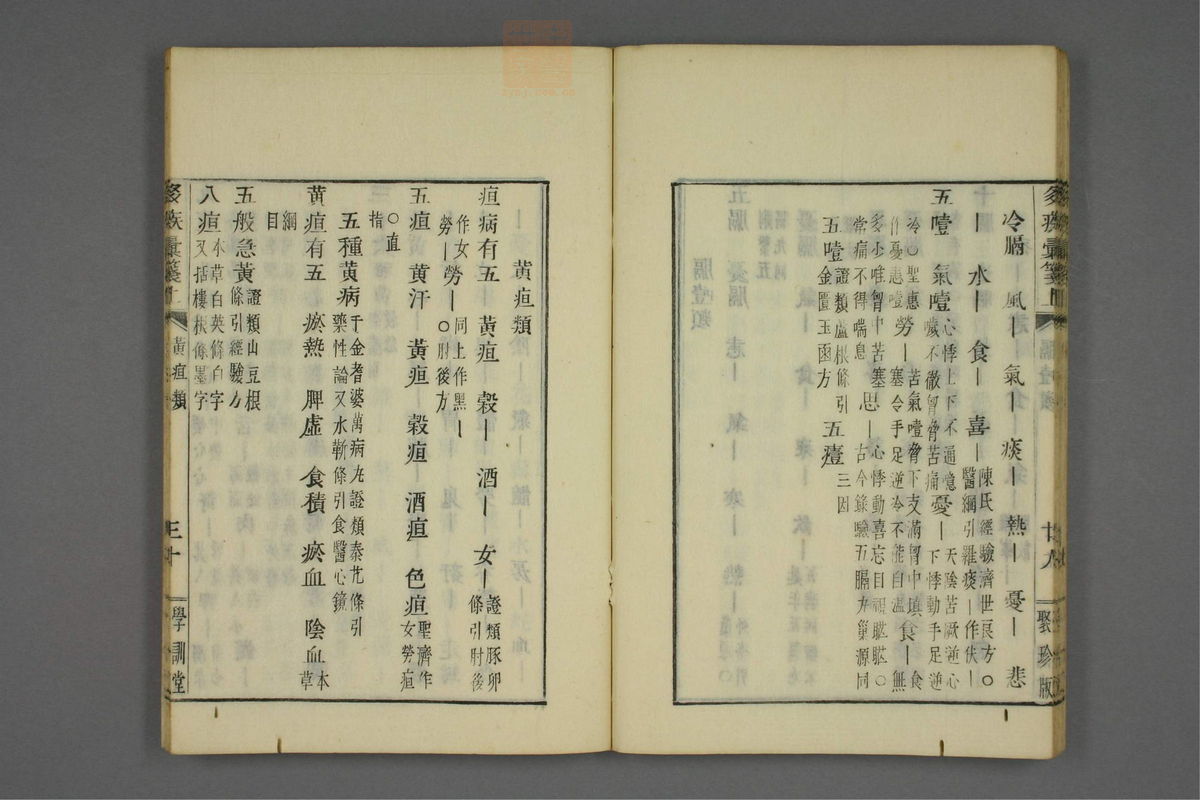 冷膈　風氣　痰｜熱｜憂｜悲
｜水｜食｜喜｜陳氏經驗濟世良方○
醫綱引雞痰｜作伏｜
五噎　氣噎心悸上下不通噫
噦不徹胷脅苦痛憂｜天陰苦厥逆心
下悸動手足逆
冷○聖惠
作憂恚噎勞｜苦氣噎脅下支滿胷中填
塞令手足逆冷不能自溫食｜食無
多少唯胷中苦塞
常痛不得喘息思｜心悸動喜忘目視䀮䀮○
古今錄驗五膈丸巢源同
五噎證類盧根條引
金匱玉函方五殪三因
廿九
聚珍版
黃疸類
疸病有五　黃疸　穀｜酒｜女｜證類豚卵
條引肘後
作女
勞｜勞｜同上作黑｜
○肘後方
五疸　黃汗　黃疸　穀疸　酒疸　色疸聖濟作
女勞疸
○直
指五種黃病千金耆婆萬病丸證類秦艽條引
藥性論又水蘄條引食醫心鏡
黃疸有五　瘀熱　脾虛　食積　瘀血　陰血本草
綱
目
五般急黃證類山豆根
條引經驗方
八疸本草白英條白字
又括樓根條墨字
黃疸類
三十
學訓堂